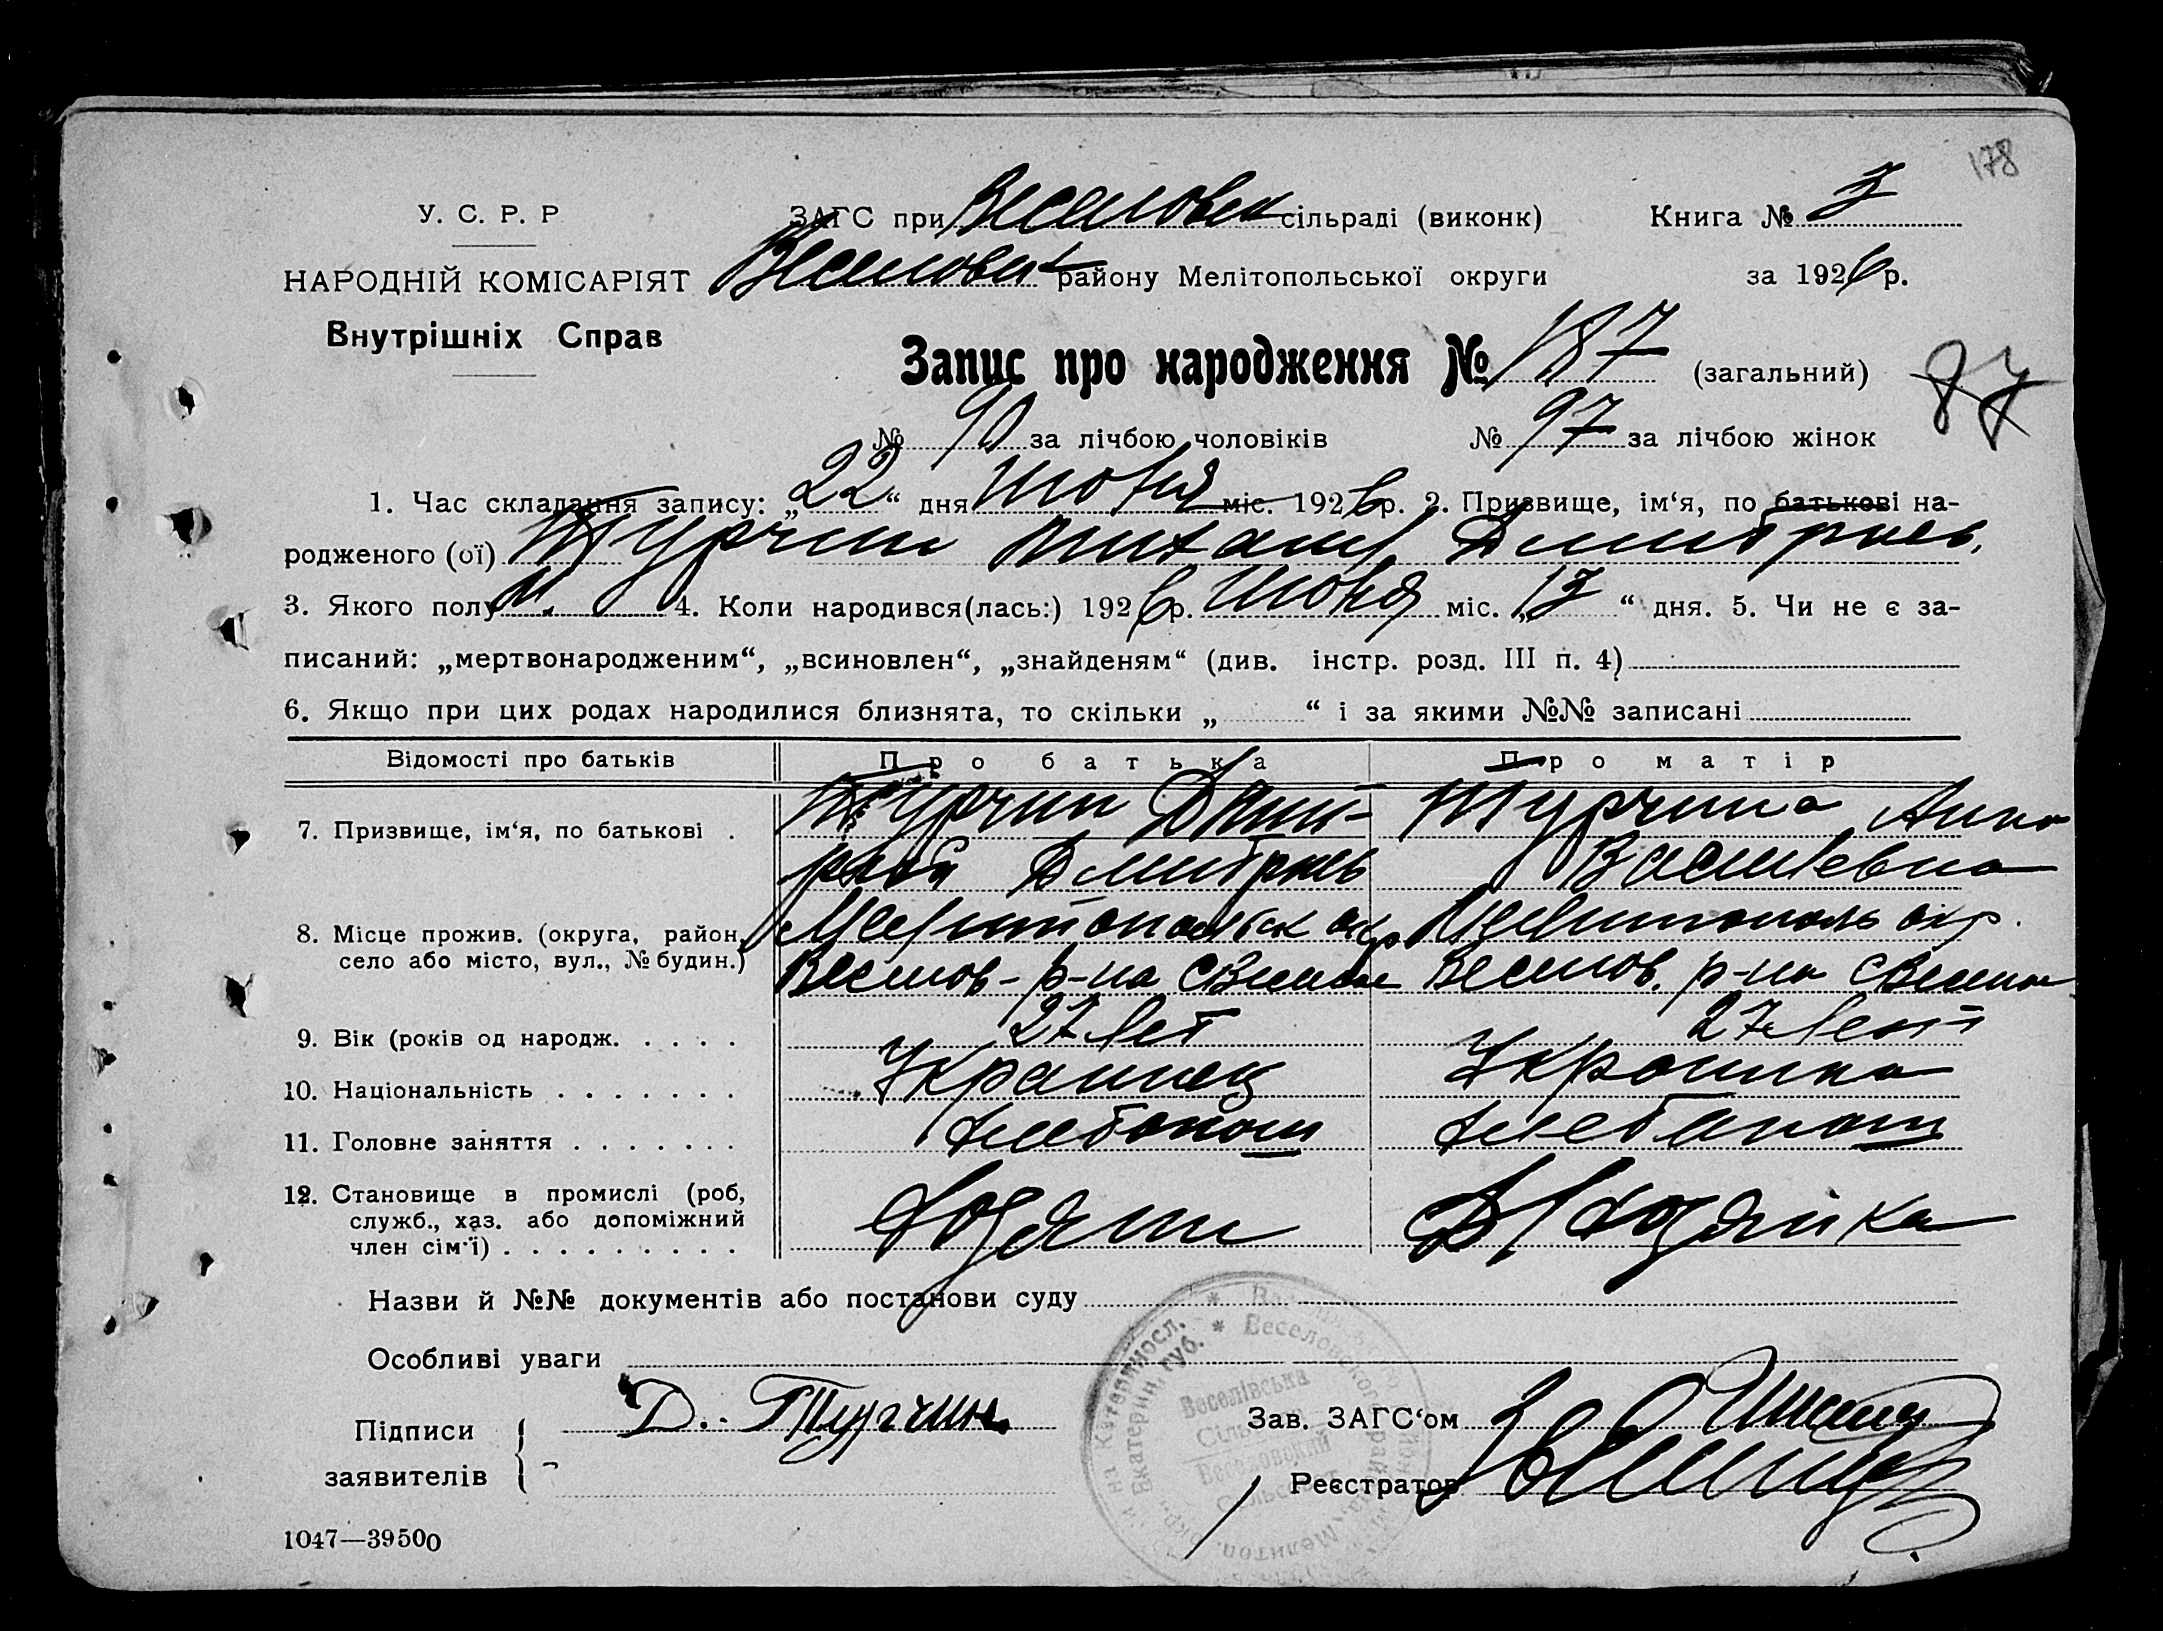 178
У. С. Р. Р
ЗАГС при Веселовск сільраді (виконк) Книга № 3
НАРОДНІЙ КОМІСАРІЯТ Веселовск району Мелітопольської округи за 1926 р.
Внутрішніх Справ
Запис про народження № 187 (загальний)
87
№ 90 за лічбою чоловіків № 97 за лічбою жінок
1. Час складання запису: „22“ дня июня міс. 1926 р. 2. Призвище, ім‘я, по батькові на-
родженого (ої) Турчин Михаил Дмитриев.
3. Якого полу м. 4. Коли народився(лась:) 1926 р. июня міс. „13“ дня. 5. Чи не є за-
писаний: „мертвонародженим“, „всиновлен“, „знайденям“ (див. інстр. розд. III п. 4)
6. Якщо при цих родах народилися близнята, то скільки „ “ і за якими №№ записані
Відомості про батьків Про батька Про матір
7. Призвище, ім‘я, по батькові . Турчин Дмит- Турчина Анна
рий Дмитриев Василевна
8. Місце прожив. (округа, район, Мелитопольск окр Мелитополь окр.
село або місто, вул., № будин.) Веселов-р-на Веселов. р-на
9. Вік (років од народж. . . . . 27 лет 27 лет
10. Національність . . . . . . . Украинец Украинка
11. Головне заняття . . . . . . . хлебопаш хлебопаш
12. Становище в промислі (роб, служб., хаз. або допоміжний член сім‘ї) . . . . . . . . . Хозяин Хозяйка
Назви й №№ документів або постанови суду
Особливі уваги
Підписи заявителів Д. Турчин
Зав. ЗАГС‘ом
Реєстратор
Веселівська
Сільрада
Веселовский
1047—39500